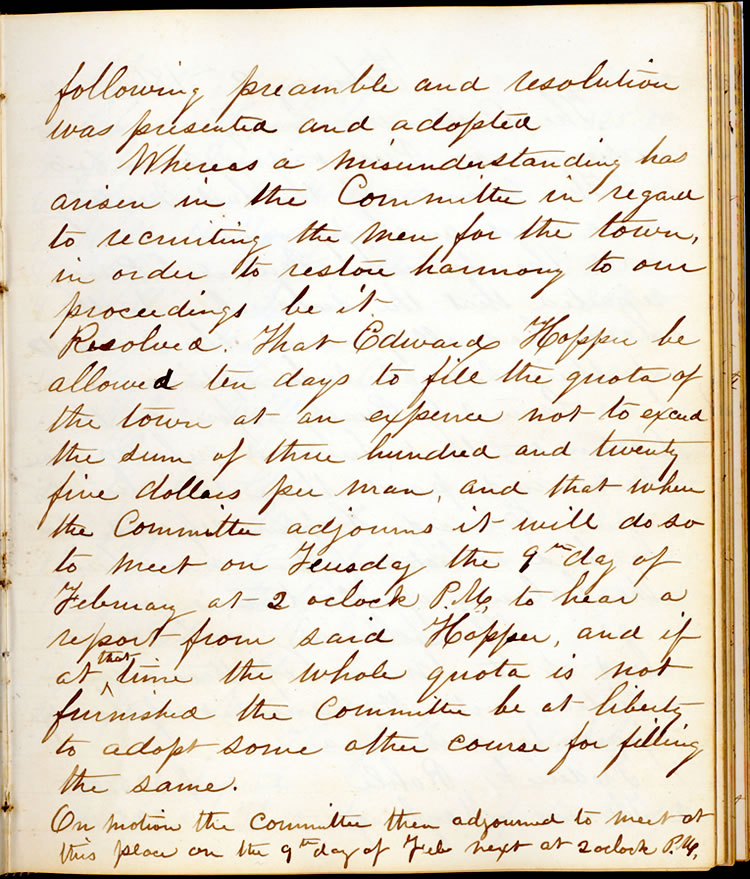 following preamble and resolution
was presented and adopted
Whereas a misunderstanding has
arisen in the Committee in regard
to recruiting the men for the town,
in order to restore harmony to our
proceedings be it
Resolved. That Edward Hopper be
allowed ten days to fill the quota of
the town at an expence not to exceed
the sum of three hundred and twenty
five dollars per man, and that when
the Committee adjourns it will do so
to meet on Teusday the 9th day of
February at 2 oclock P.M, to hear a
report from said Hopper, and if
at that time the whole quota is not
furnished the Committee be at liberty
to adopt some other course for filling
the same.
On motion the Committee then adjourned to meet at
this place on the 9th day of Feb next at 2 oclock P.M,